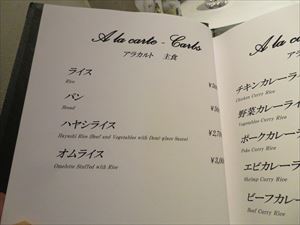 A la carte - Carbs
アラカルト 主食
ライス
Rice
パン
Bread
ハヤシライス
Hayashi Rice (Beef and Vegetables with Demi-glace Sauce)
オムライス
Omelette Stuffed with Rice
A la
チキンカレーライ
Chicken Curry Rice
野菜カレーライ
Vegetables Curry Rice
ポークカレーラ
Poke Curry Rice
エビカレーラ
Shrimp Curry Rice
ビーフカレー
Beef Curry Rice